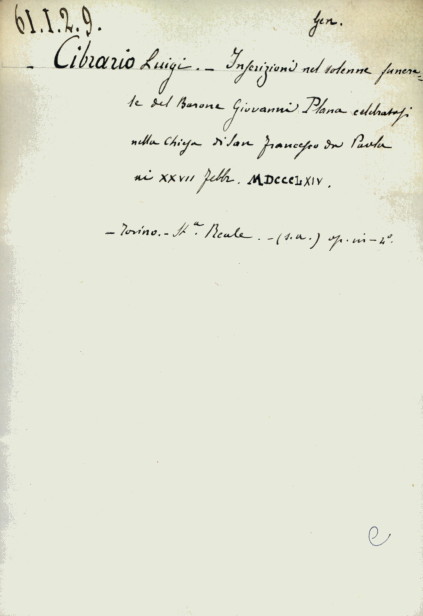 Gen.
61.1.2.9.
- Cibrario Luigi. - Inscrizioni nel solenne funera=
le del Barone Giovanni Plana celebratosi
nella Chiesa di San Francesco da Paola
ai XXVII Febbr. MDCCCLXIV.
- Torino. - St.a Reale. - (s.a.) op. in-4°.